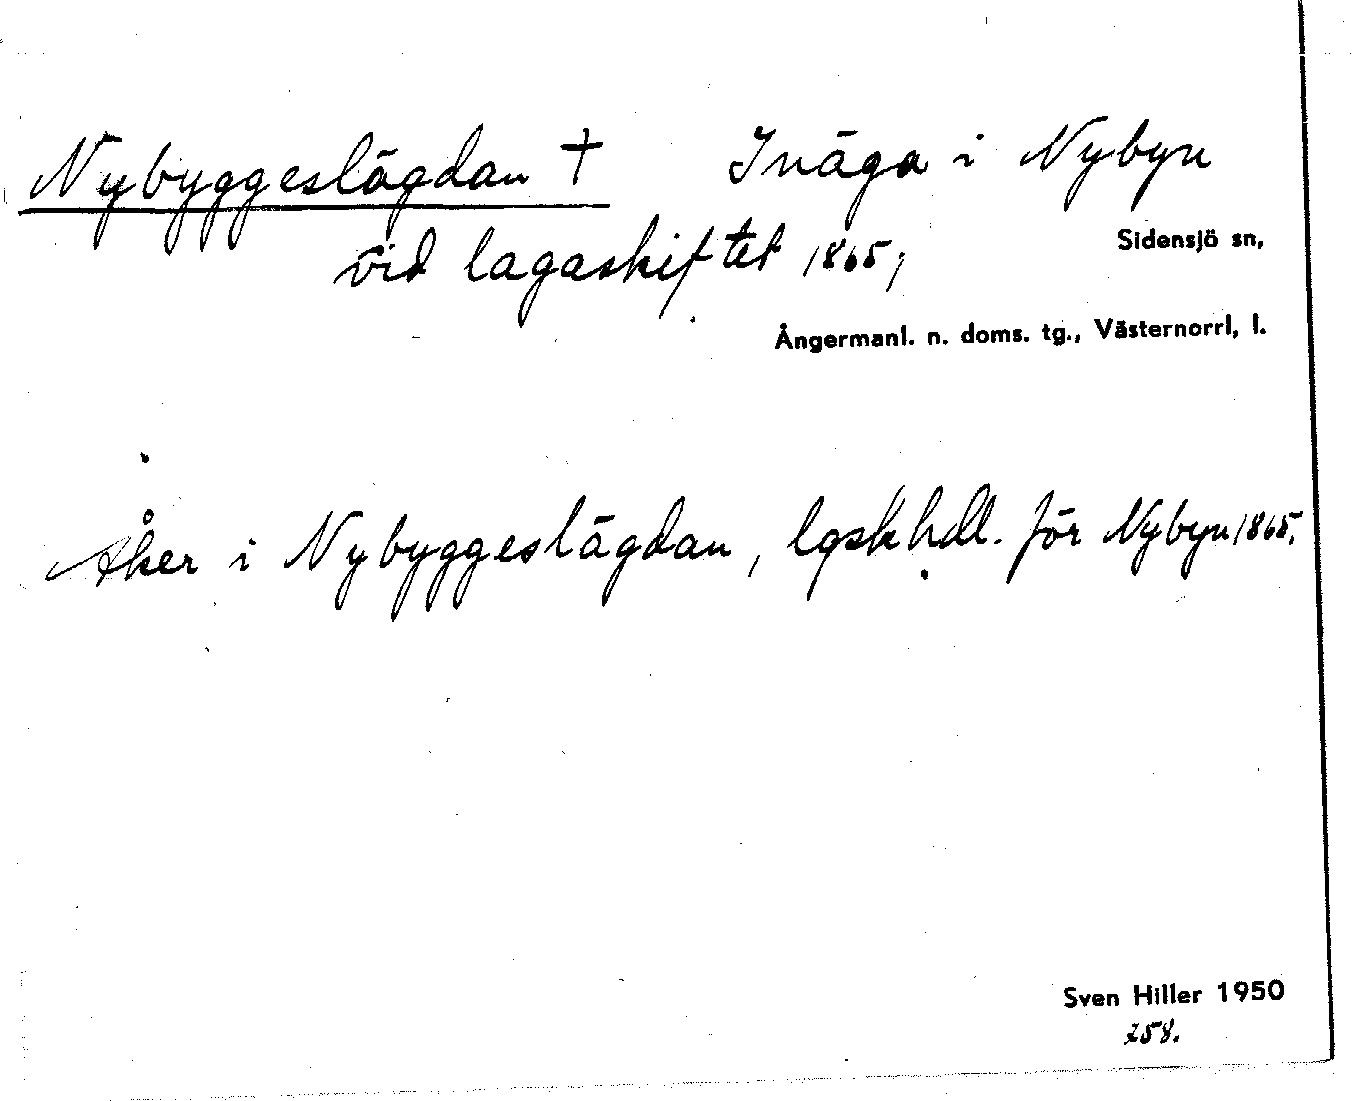 Nybyggeslägdan † Inäga i Nybyn
vid lagaskiftet 1865,
Sidensjö sn,
Ångermanl. n. doms. tg., Västernorrl, l.
Åker i Nybyggeslägdan, lgskhdl. för Nybyn 1865.
Sven Hiller 1950
258.